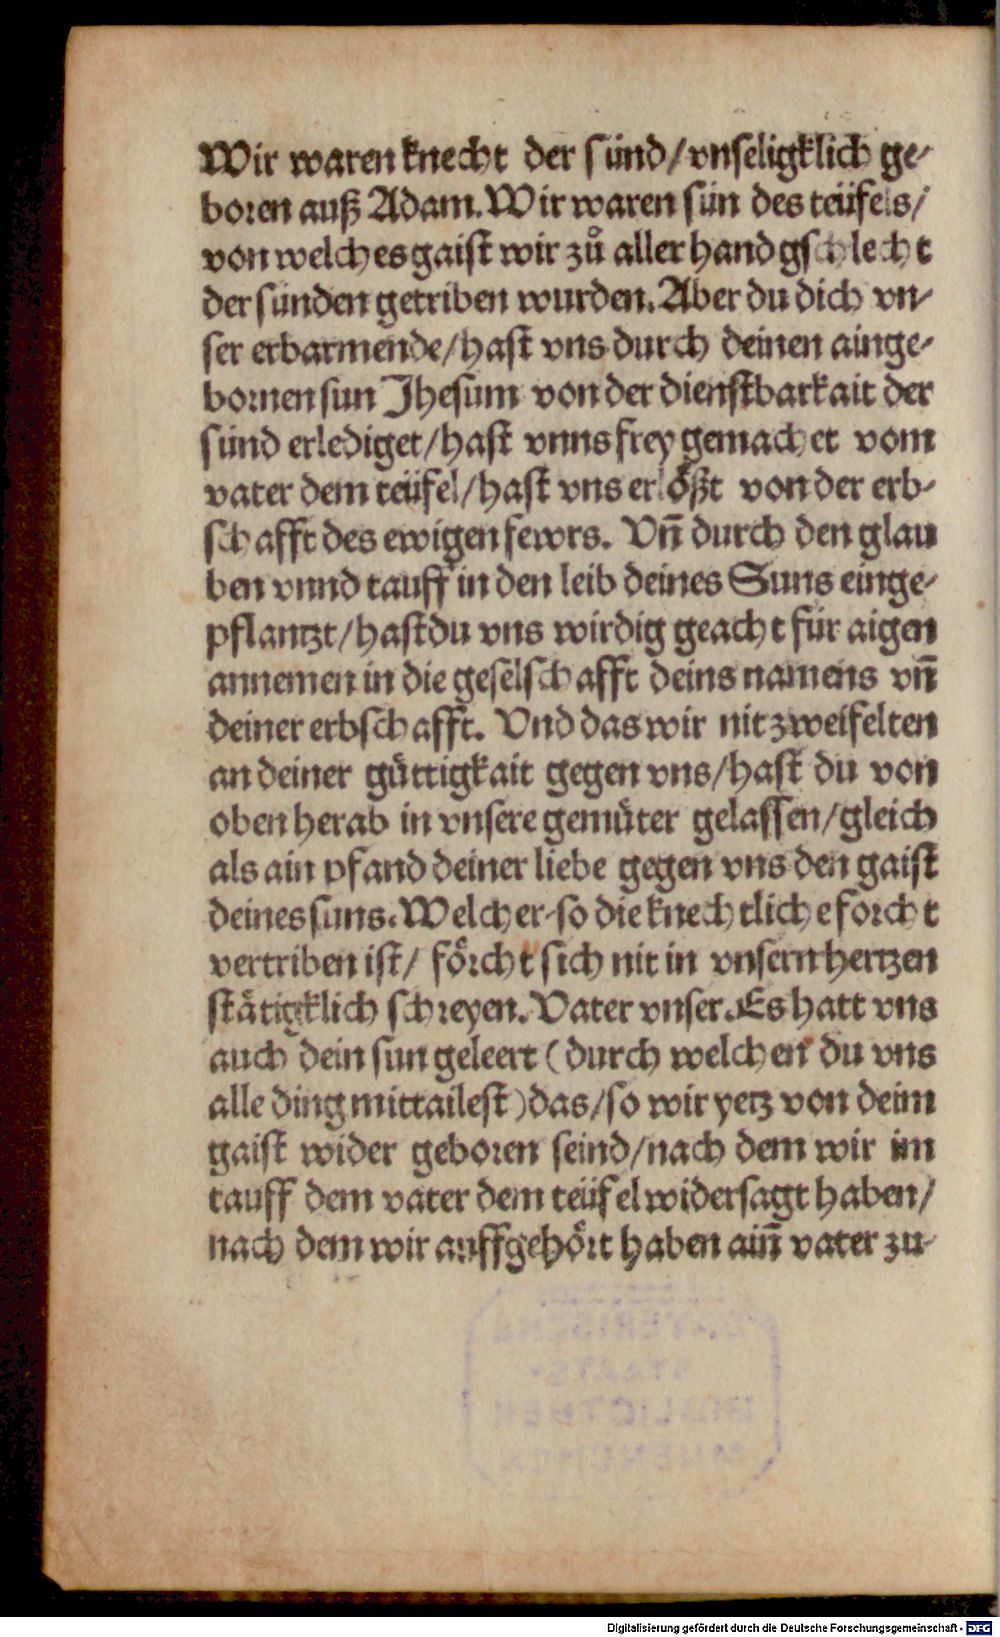 Wir waren knecht der sünd/vnseligklich ge-
boren auß Adam. Wir waren sün des teüfels/
von welches gaist wir zů aller hand gschlecht
der sünden getriben wurden. Aber du dich vn-
ser erbarmende/hast vns durch deinen ainge-
bornen sun Jhesum von der dienstbarkait der
sünd erlediget/hast vnns frey gemachet vom
vater dem teüfel/hast vns erlößt von der erb-
schafft des ewigen fewrs. Vñ durch den glau
ben vnnd tauff in den leib deines Suns einge-
pflantzt/hastdu vns wirdig geacht für aigen
annemen in die geselschafft deins namens vñ
deiner erbschafft. Vnd das wir nit zweifelten
an deiner güttigkait gegen vns/hast du von
oben herab in vnsere gemüter gelassen/gleich
als ain pfand deiner liebe gegen vns den gaist
deines suns. Welcher so die knechtliche forcht
vertriben ist/ förcht sich nit in vnsern hertzen
stätigklich schreyen. Vater vnser. Es hatt vns
auch dein sun geleert (durch welchen du vns
alle ding mittailest) das/so wir yetz von deim
gaist wider geboren seind/nach dem wir im
tauff dem vater dem teüfel widersagt haben/
nach dem wir auffgehört haben aiñ vater zu-
BAYERISCHE
STAATS-
BIBLIOTHEK
MUENCHEN
Digitalisierung gefördert durch die Deutsche Forschungsgemeinschaft - DFG